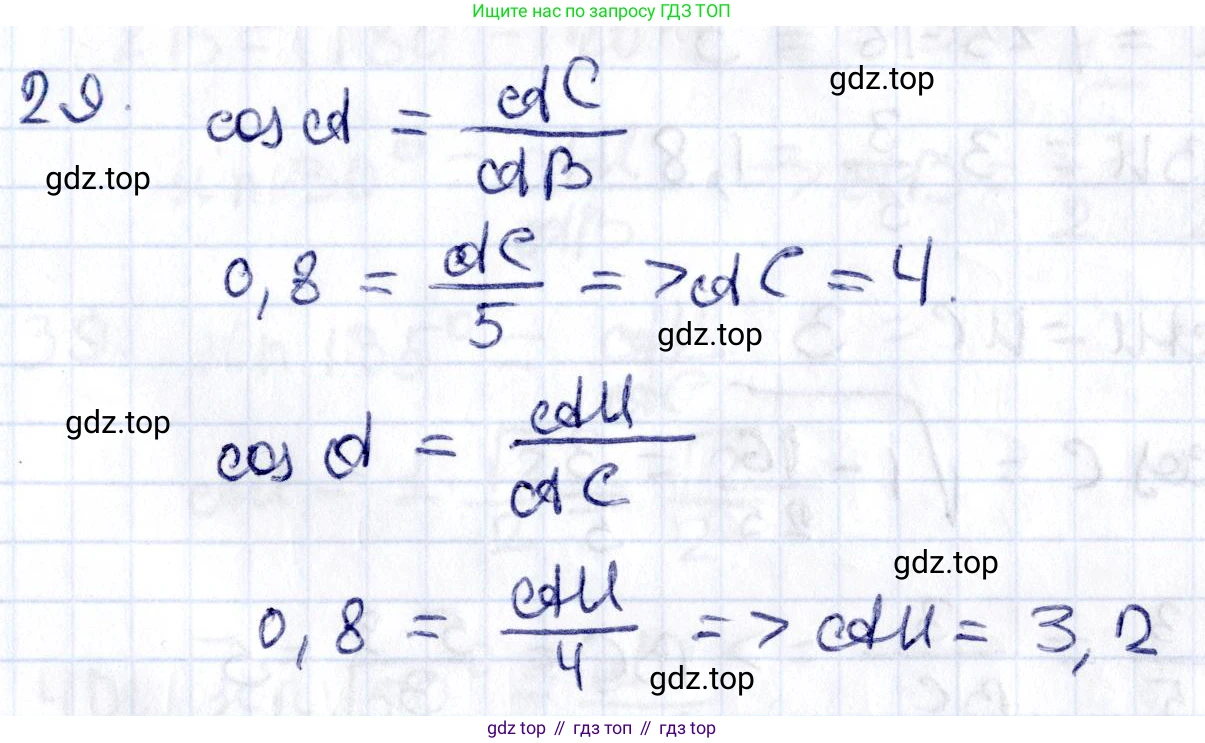 Ищите нас по запросу ГДЗ ТОП
29. cos A = AC / AB
gdz.top
gdz.top
0,8 = AC / 5 => AC = 4.
gdz.top
gdz.top
cos A = AH / AC
gdz.top
0,8 = AH / 4 => AH = 3,2
gdz.top
gdz top // гдз топ // gdz top